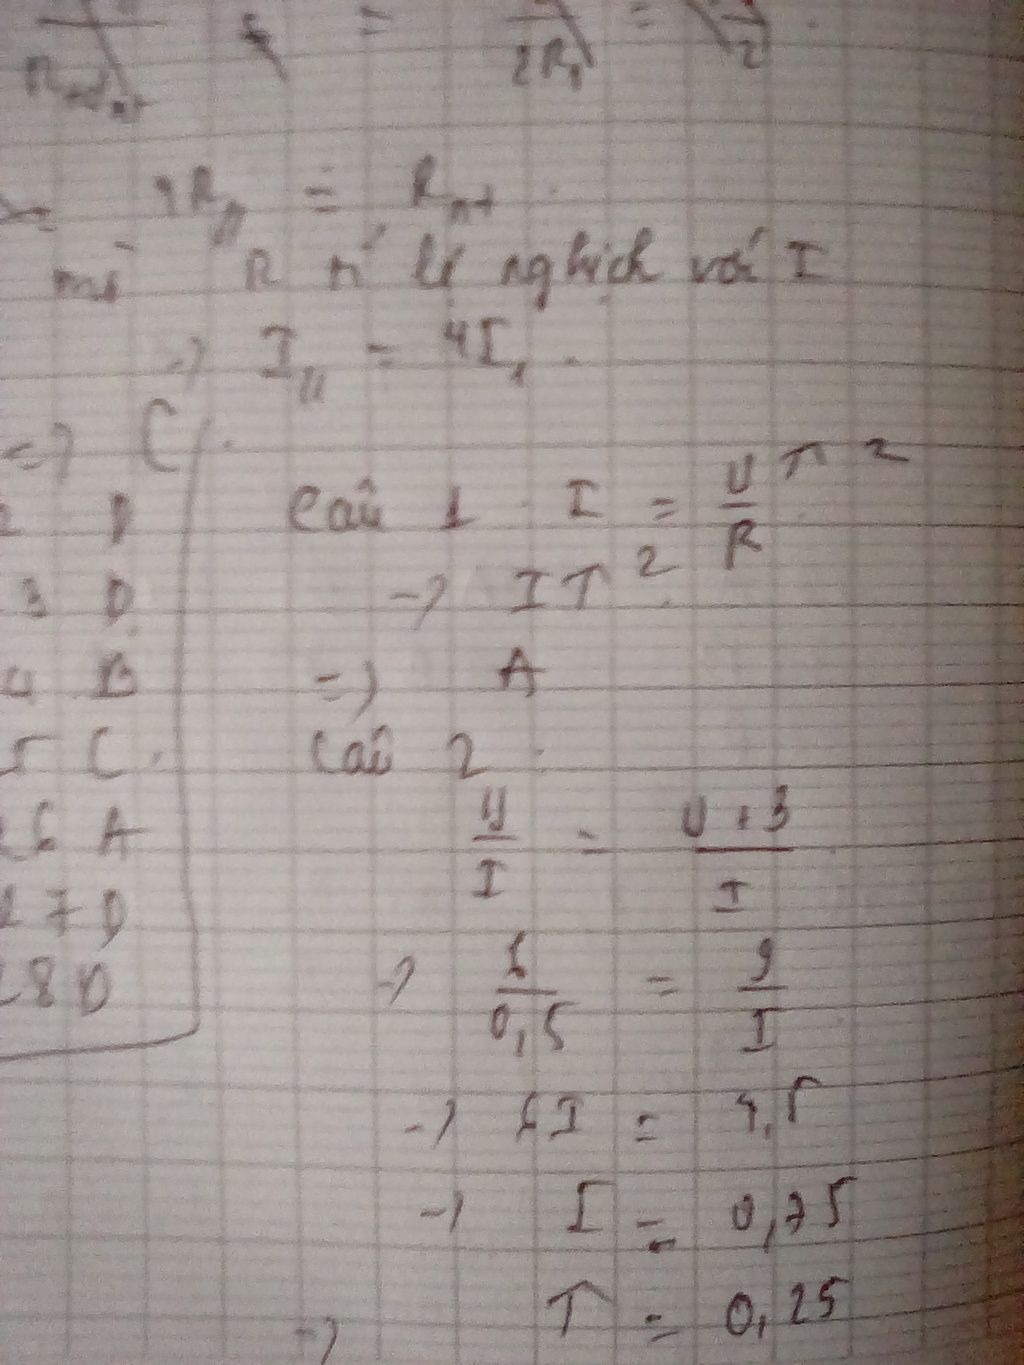 = =
2R₁ 2
4R// = Rnt
mà R tỉ lệ nghịch với I
-> I// = 4I₁.
=> C.
2 D
3 D
4 B
5 C.
26 A
27 D
28 D
Câu 1. I = U/R ↑ 2
-> I ↑ 2
=> A
Câu 2.
U/I = U+3/I
-> 6/0,5 = 9/I
-> 6I = 4,5
-> I = 0,75
-> ↑ = 0,25